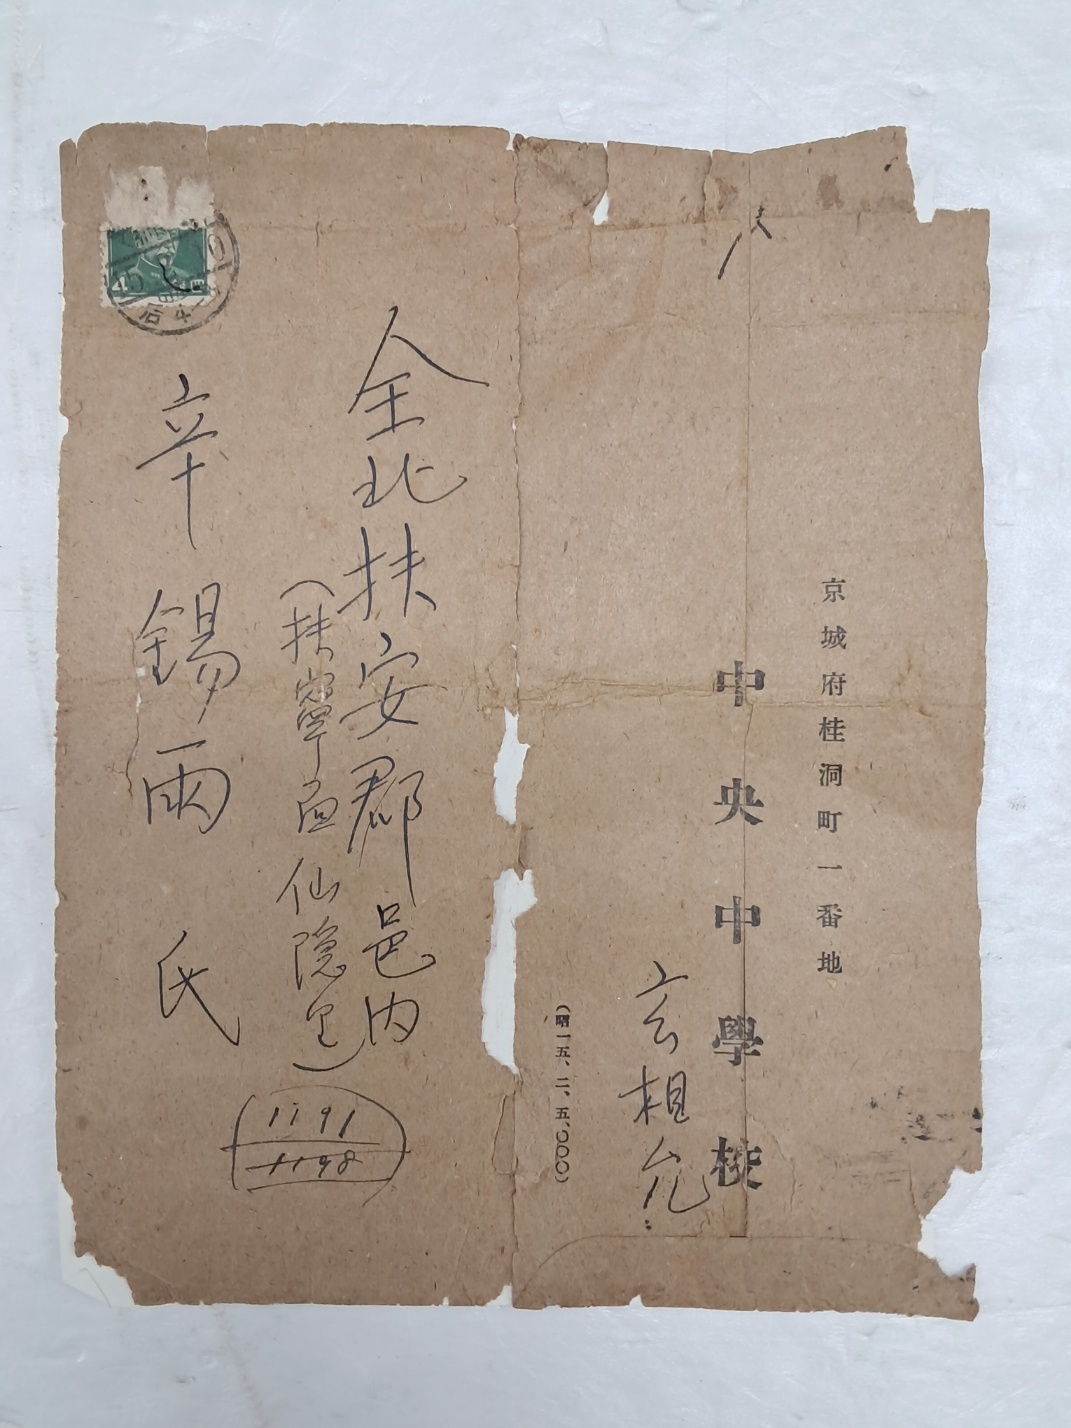 京城府桂洞町一番地
中央中學校
玄相允
(昭一五、二、五、〇〇〇)
全北扶安郡邑内
(扶寧面仙隱里)
辛錫雨 氏
1191
1198